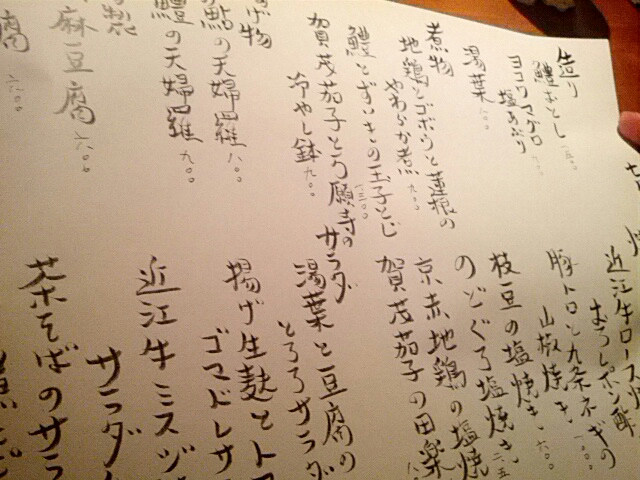 造り
鱧おとし
ヨコワマグロ
塩あぶり
湯葉
煮物
地鶏とゴボウと蓮根の
やわらか煮 九〇〇
鱧とずいきの玉子とじ 一三〇〇
賀茂茄子と万願寺の
冷やし鉢 九〇〇
揚げ物
鮎の天婦羅 八〇〇
鱧の天婦羅 九〇〇
麻豆腐 六〇〇
腐
近江牛ロース
おろしポン酢
豚トロと九条ネギの
山椒焼き 六〇〇
枝豆の塩焼き
のどぐろ塩焼き
京赤地鶏の塩焼
賀茂茄子の田楽
サラダ
湯葉と豆腐の
とろろサラダ
揚げ生麩とトマ
ゴマドレサ
近江牛ミスジ
サラダ
茶そばのサラ